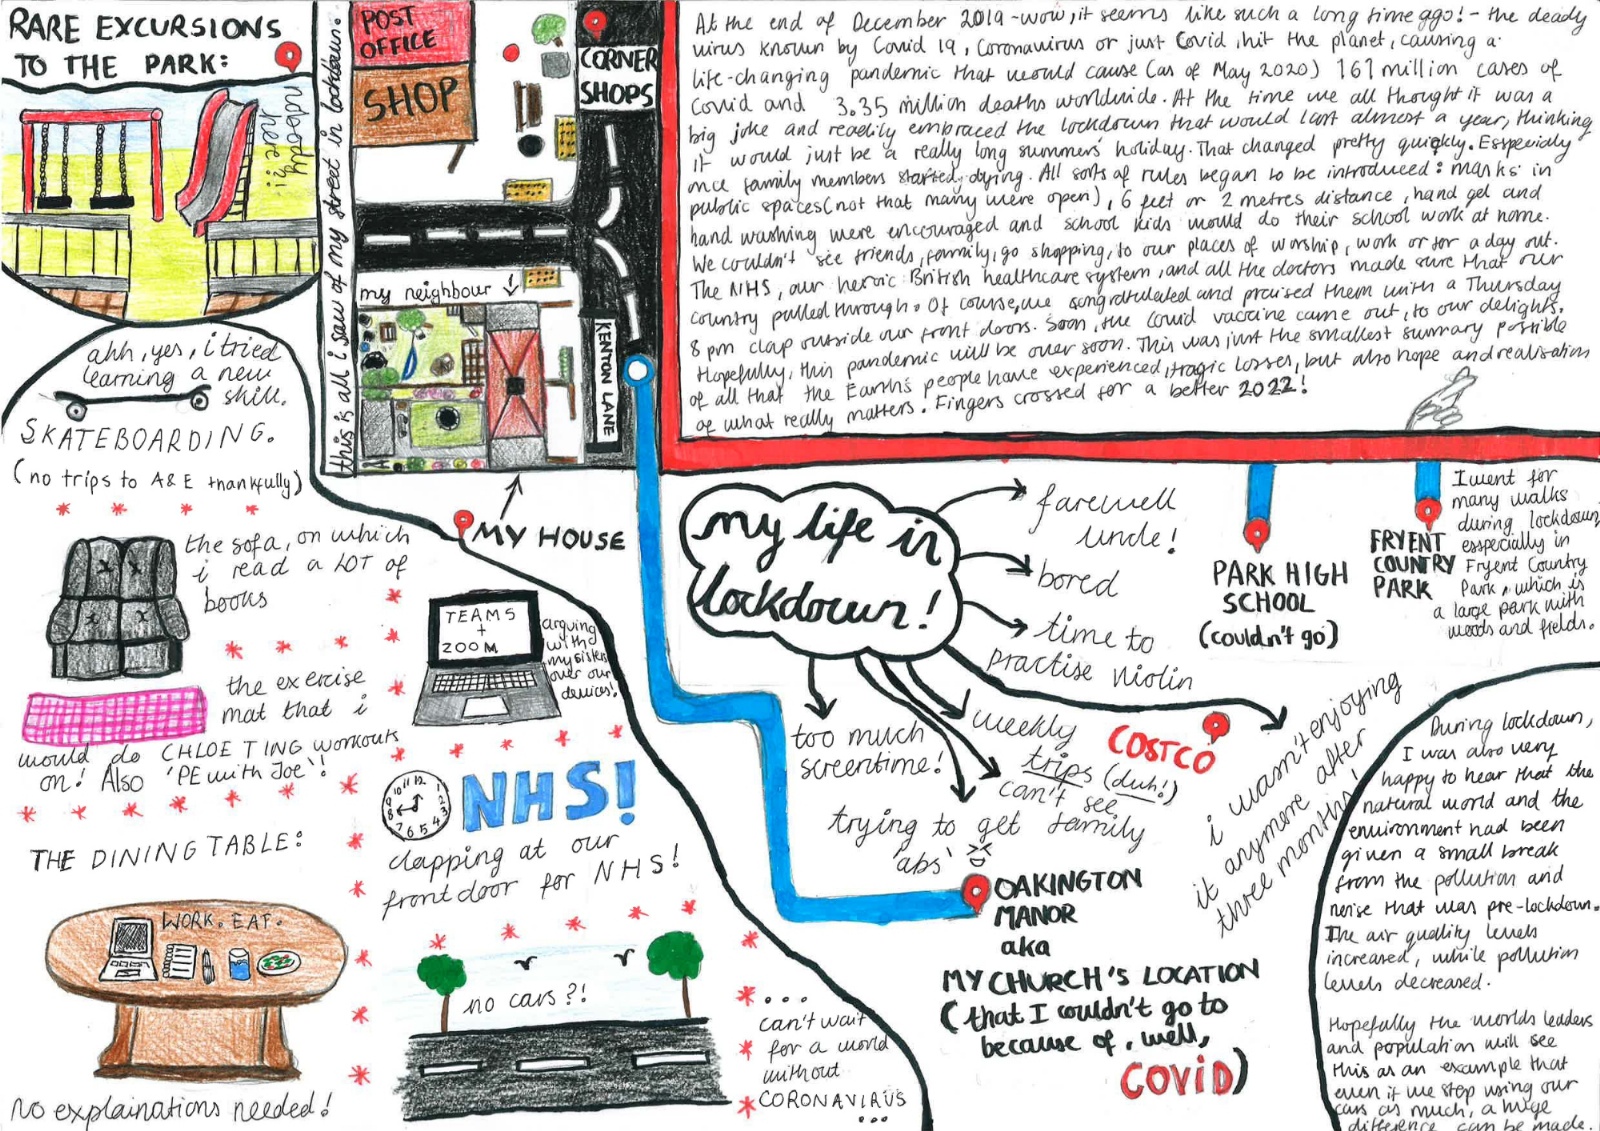 RARE EXCURSIONS
TO THE PARK:
nobody
here?!
this is all i saw of my street in lockdown.
POST
OFFICE
SHOP
CORNER
SHOPS
my neighbour
KENTON LANE
MY HOUSE
At the end of December 2019 - wow, it seems like such a long time ago! - the deadly
virus known by Covid 19, Coronavirus or just Covid, hit the planet, causing a
life-changing pandemic that would cause (as of May 2020) 161 million cases of
Covid and 3.35 million deaths worldwide. At the time we all thought it was a
big joke and readily embraced the lockdown that would last almost a year, thinking
it would just be a really long summers' holiday. That changed pretty quickly. Especially
once family members started dying. All sorts of rules began to be introduced: masks in
public spaces (not that many were open), 6 feet or 2 metres distance, hand gel and
hand washing were encouraged and school kids would do their school work at home.
We couldn't see friends, family, go shopping, to our places of worship, work or for a day out.
The NHS, our heroic British healthcare system, and all the doctors made sure that our
country pulled through. Of course, we congratulated and praised them with a Thursday
8 pm clap outside our front doors. Soon, the Covid vaccine came out, to our delights.
Hopefully, this pandemic will be over soon. This was just the smallest summary possible
of all that the Earth's people have experienced, tragic losses, but also hope and realisation
of what really matters. Fingers crossed for a better 2022!
ahh, yes, i tried
learning a new
skill.
SKATEBOARDING.
(no trips to A&E thankfully)
the sofa, on which
i read a LOT of
books
the exercise
mat that i
would do CHLOE TING workouts
on! Also 'PE with Joe'!
THE DINING TABLE:
WORK. EAT.
no explainations needed!
TEAMS
+
ZOOM
arguing
with
my sisters
over our
devices!
12 1 2 3 4 5 6 7 8 9 10 11
NHS!
clapping at our
front door for NHS!
no cars?!
...
can't wait
for a world
without
CORONAVIRUS
...
my life in
lockdown!
farewell
uncle!
bored
time to
practise violin
COSTCO
weekly
trips (duh!)
can't see
family
too much
screentime!
trying to get
'abs'
XD
i wasn't enjoying
it anymore after
three months!
OAKINGTON
MANOR
aka
MY CHURCH'S LOCATION
(that I couldn't go to
because of, well,
COVID)
PARK HIGH
SCHOOL
(couldn't go)
FRYENT
COUNTRY
PARK
I went for
many walks
during lockdown,
especially in
Fryent Country
Park, which is
a large park with
woods and fields.
During lockdown,
I was also very
happy to hear that the
natural world and the
environment had been
given a small break
from the pollution and
noise that was pre-lockdown.
The air quality levels
increased, while pollution
levels decreased.
Hopefully the worlds leaders
and population will see
this as an example that
even if we stop using our
cars as much, a huge
difference can be made.